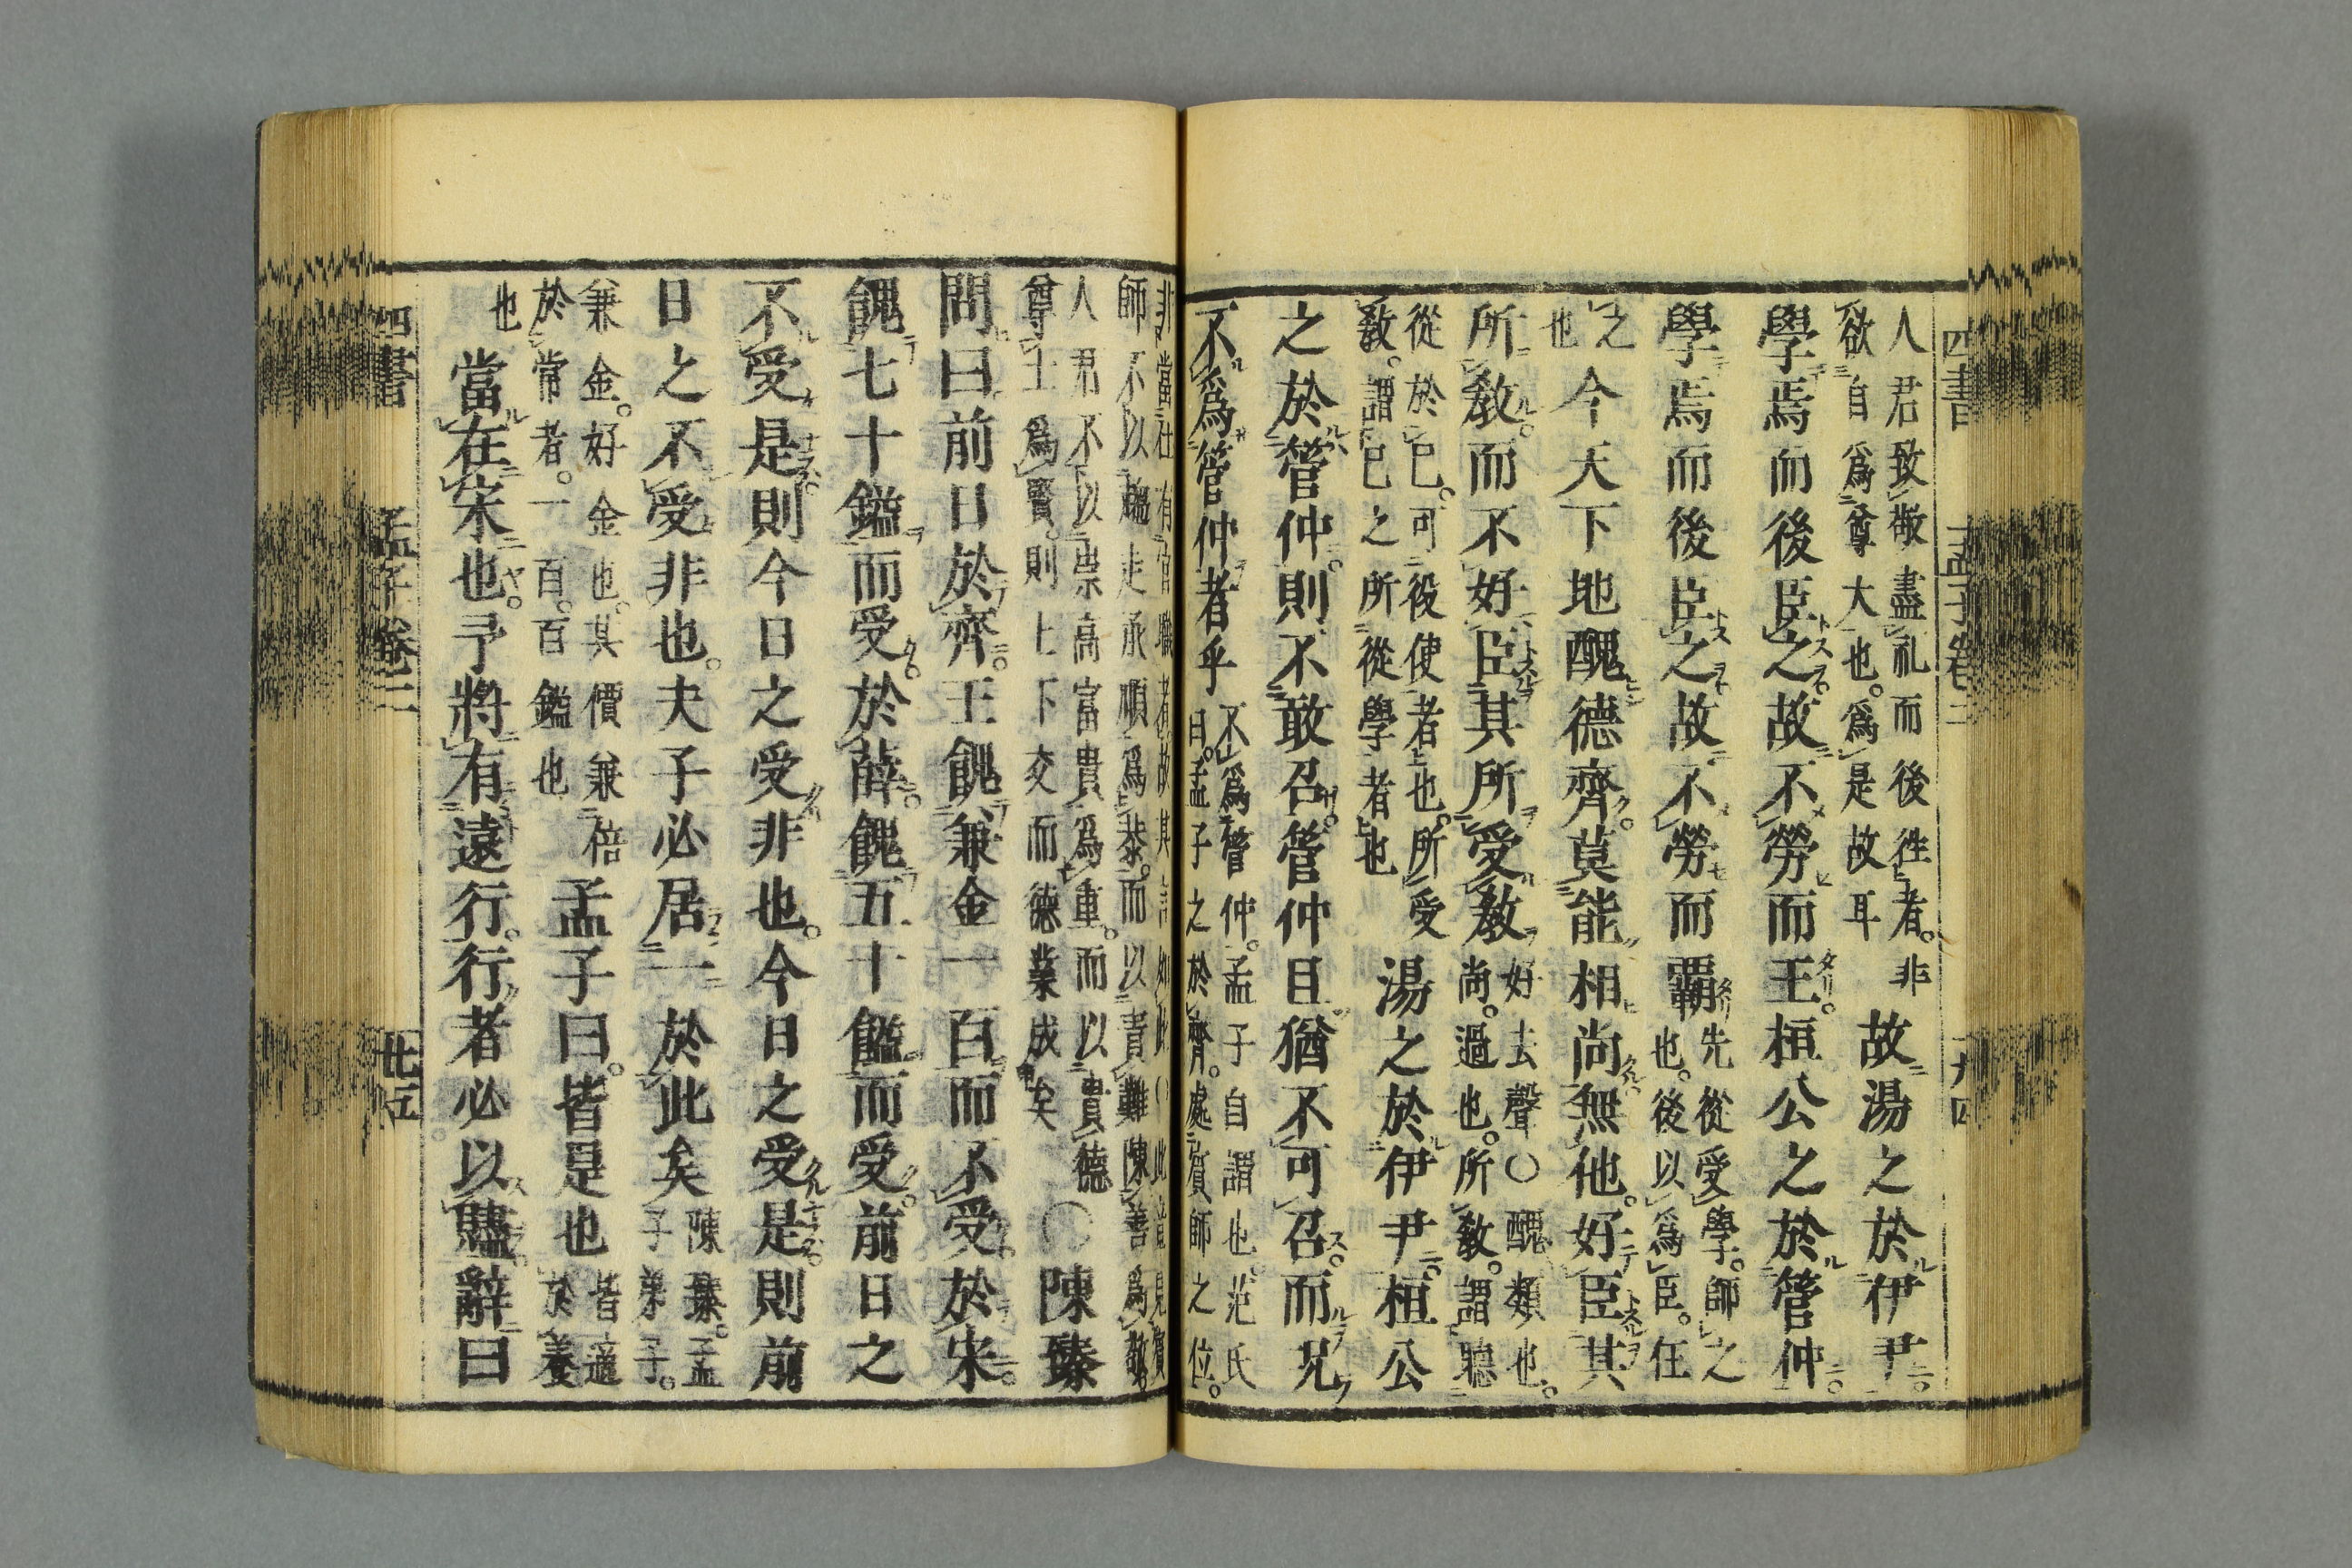 四書 孟子卷二 十四
人君致敬盡礼而後往者。非
欲自爲尊大也。爲是故耳
故湯之於伊尹。
學焉而後臣之。故不勞而王。桓公之於管仲。
學焉而後臣之。故不勞而覇
先從受學。師之
也。後以爲臣。任
之
也
今天下地醜德齊。莫能相尚。無他。好臣其
所敎。而不好臣其所受敎
好去聲〇醜類也。
尚。過也。所敎。謂聽
從於己。可役使者也。所受
敎。謂己之所從學者也
湯之於伊尹。桓公
之於管仲。則不敢召。管仲且猶不可召。而况
不爲管仲者乎
不爲管仲。孟子自謂也。范氏
曰。孟子之於齊。處賓師之位。
非當仕有官職者故其言如此〇此章見賓
師不以趨走承順爲恭。而以責難陳善爲敬。
人君不以崇高富貴爲重。而以貴德
尊士爲賢。則上下交而德業成矣
〇陳臻
問曰。前日於齊。王餽兼金一百而不受。於宋。
餽七十鎰而受。於薛。餽五十鎰而受。前日之
不受是。則今日之受非也。今日之受是。則前
日之不受非也。夫子必居一於此矣
陳臻。孟
子弟子。
兼金。好金也。其價兼倍
於常者。一百。百鎰也
孟子曰。皆是也
皆適
於義
也
當在宋也。予將有遠行。行者必以贐。辭曰
四書 孟子卷二 廿五